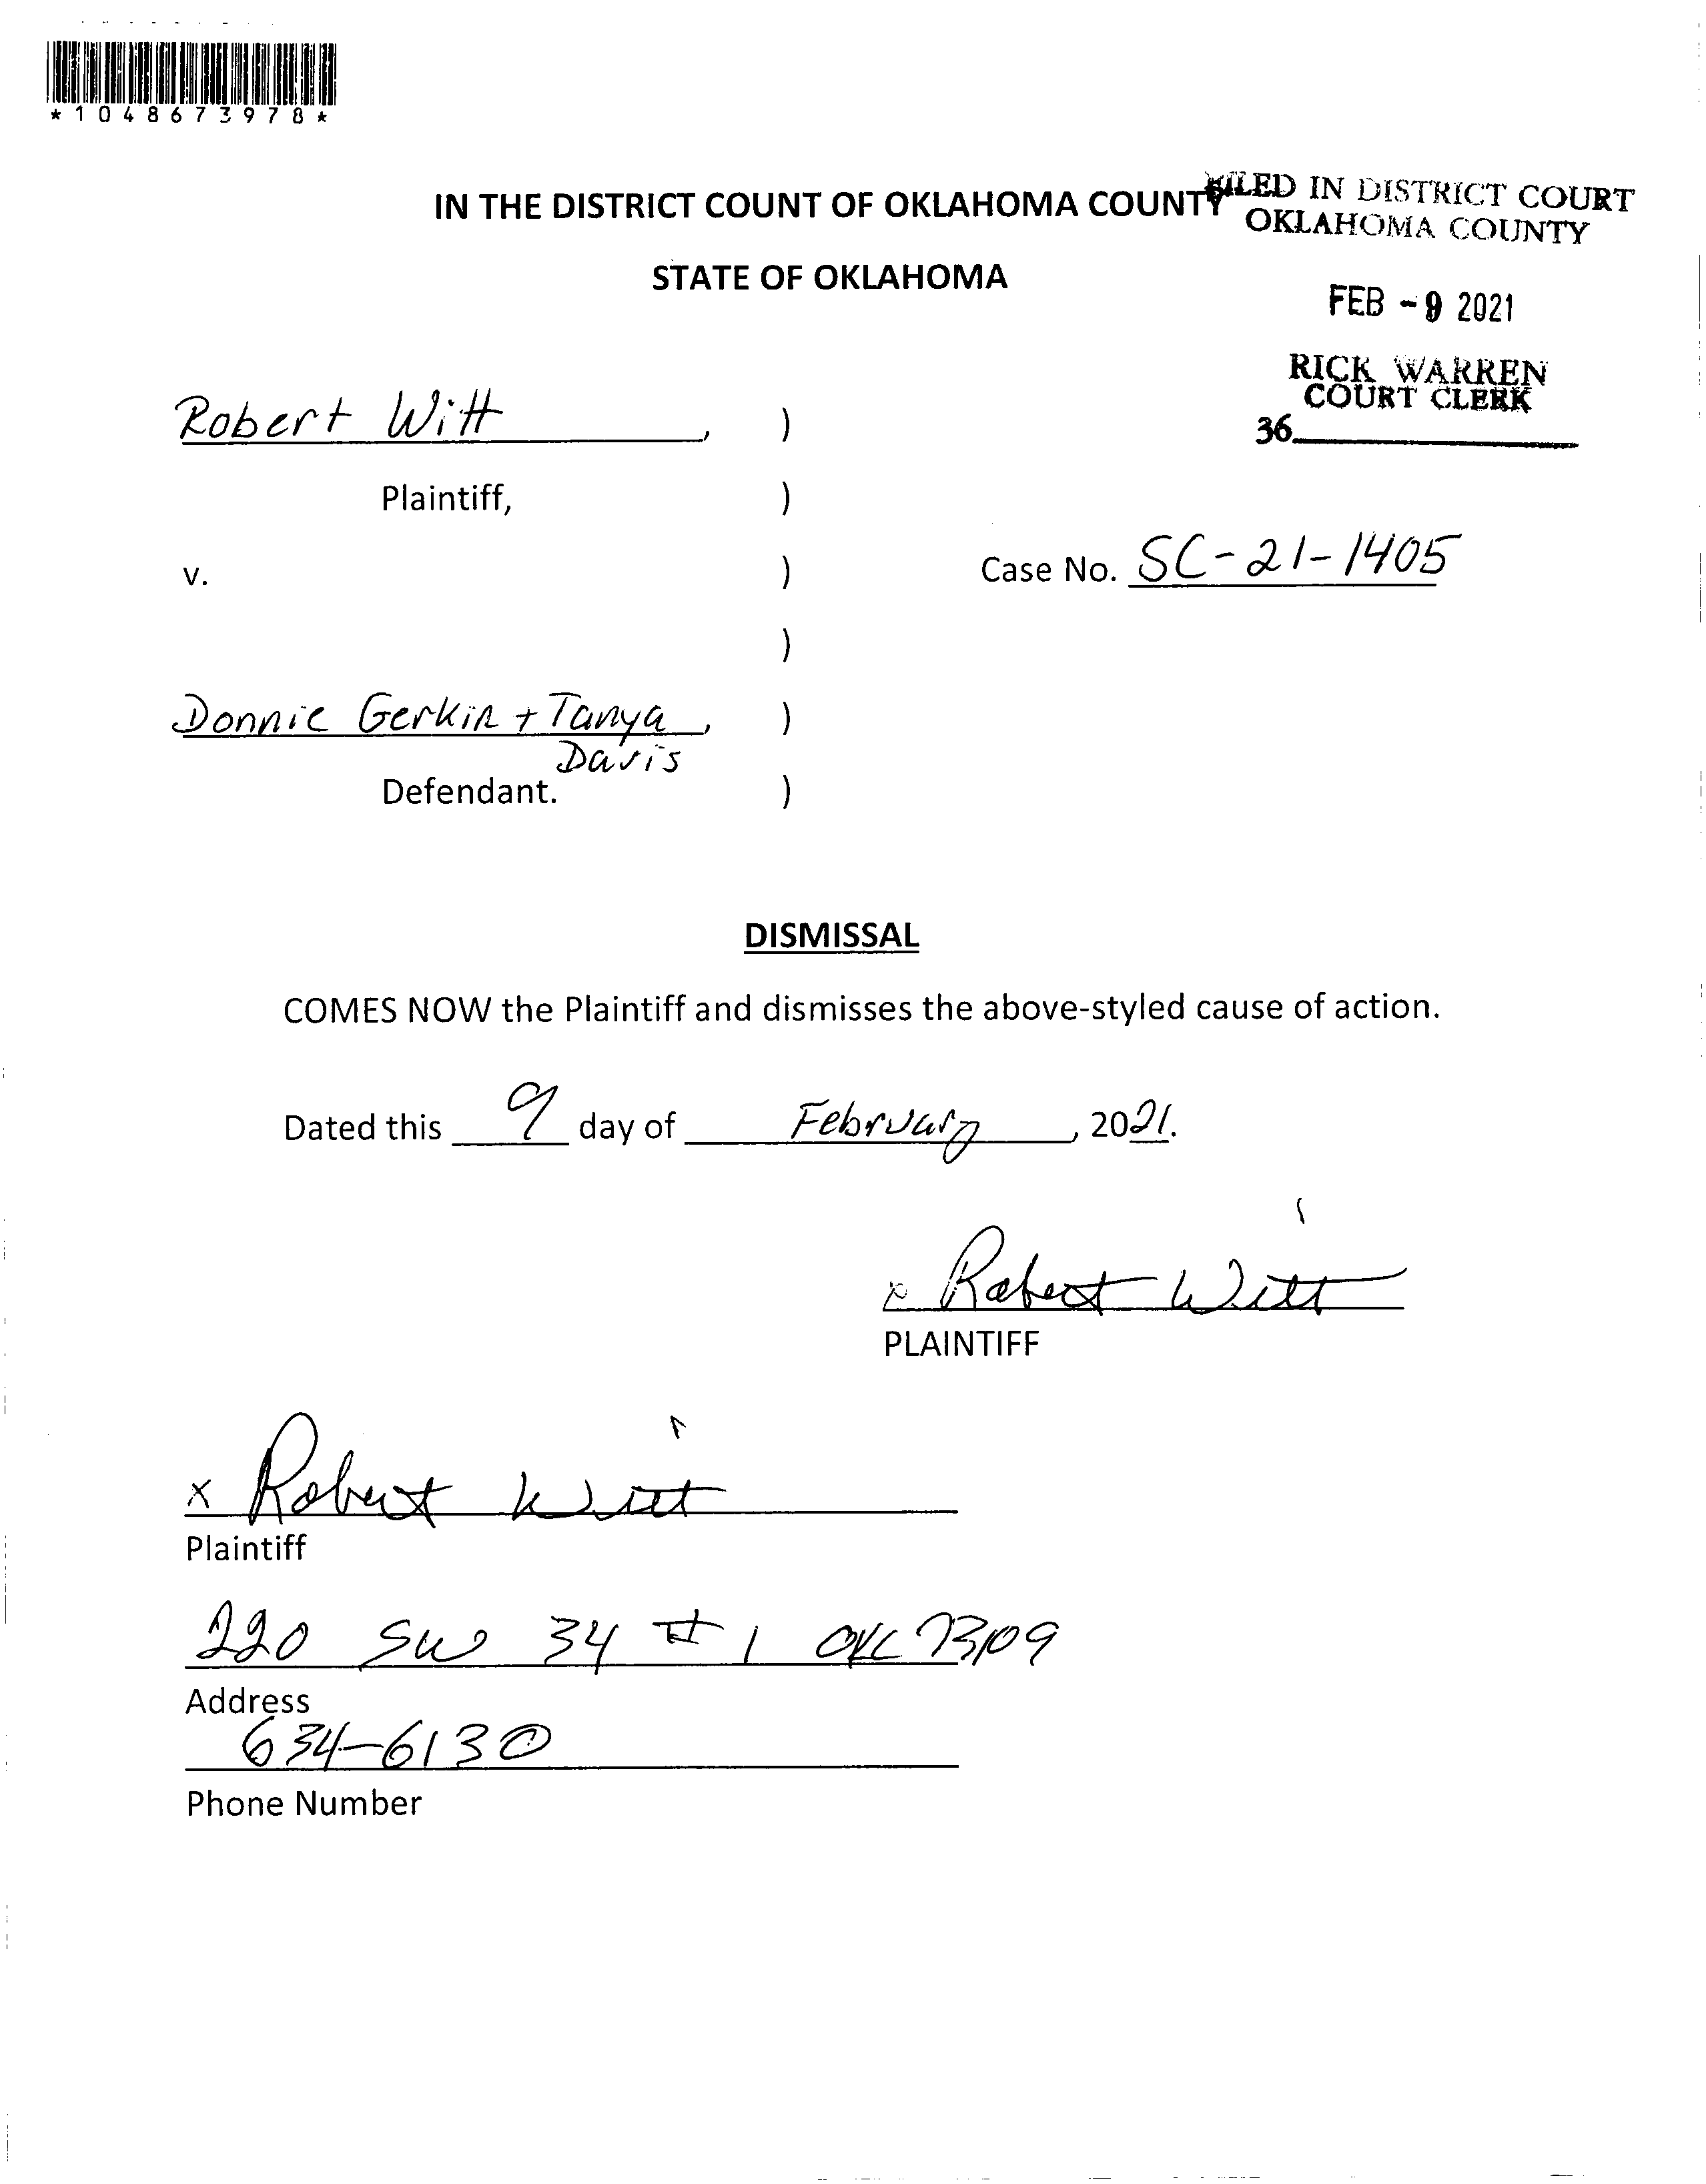 *1048673978*
IN THE DISTRICT COUNT OF OKLAHOMA COUNTY
FILED IN DISTRICT COURT
OKLAHOMA COUNTY
STATE OF OKLAHOMA
FEB -9 2021
RICK WARREN
COURT CLERK
36
Robert Witt, )
Plaintiff, )
v. )
Case No. SC-21-1405
)
Donnie Gerkin + Tanya, )
Davis
Defendant. )
DISMISSAL
COMES NOW the Plaintiff and dismisses the above-styled cause of action.
Dated this 9 day of February, 2021.
x Robert Witt
PLAINTIFF
x Robert Witt
Plaintiff
220 SW 34 #1 OKC 73109
Address
634-6130
Phone Number